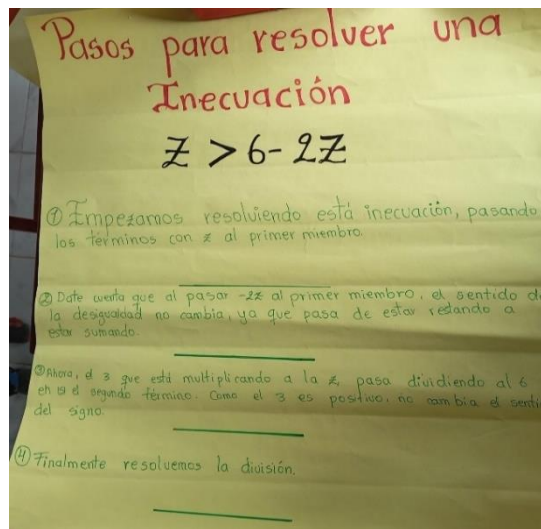 Pasos para resolver una
Inecuación
z > 6 - 2z
① Empezamos resolviendo está inecuación, pasando
los términos con z al primer miembro.
② Date cuenta que al pasar -2z al primer miembro, el sentido d
la desigualdad no cambia, ya que pasa de estar restando a
estar sumando.
③ Ahora, el 3 que está multiplicando a la z, pasa dividiendo al 6
en el segundo término. Como el 3 es positivo, no cambia el senti
del signo.
④ Finalmente resolvemos la división.